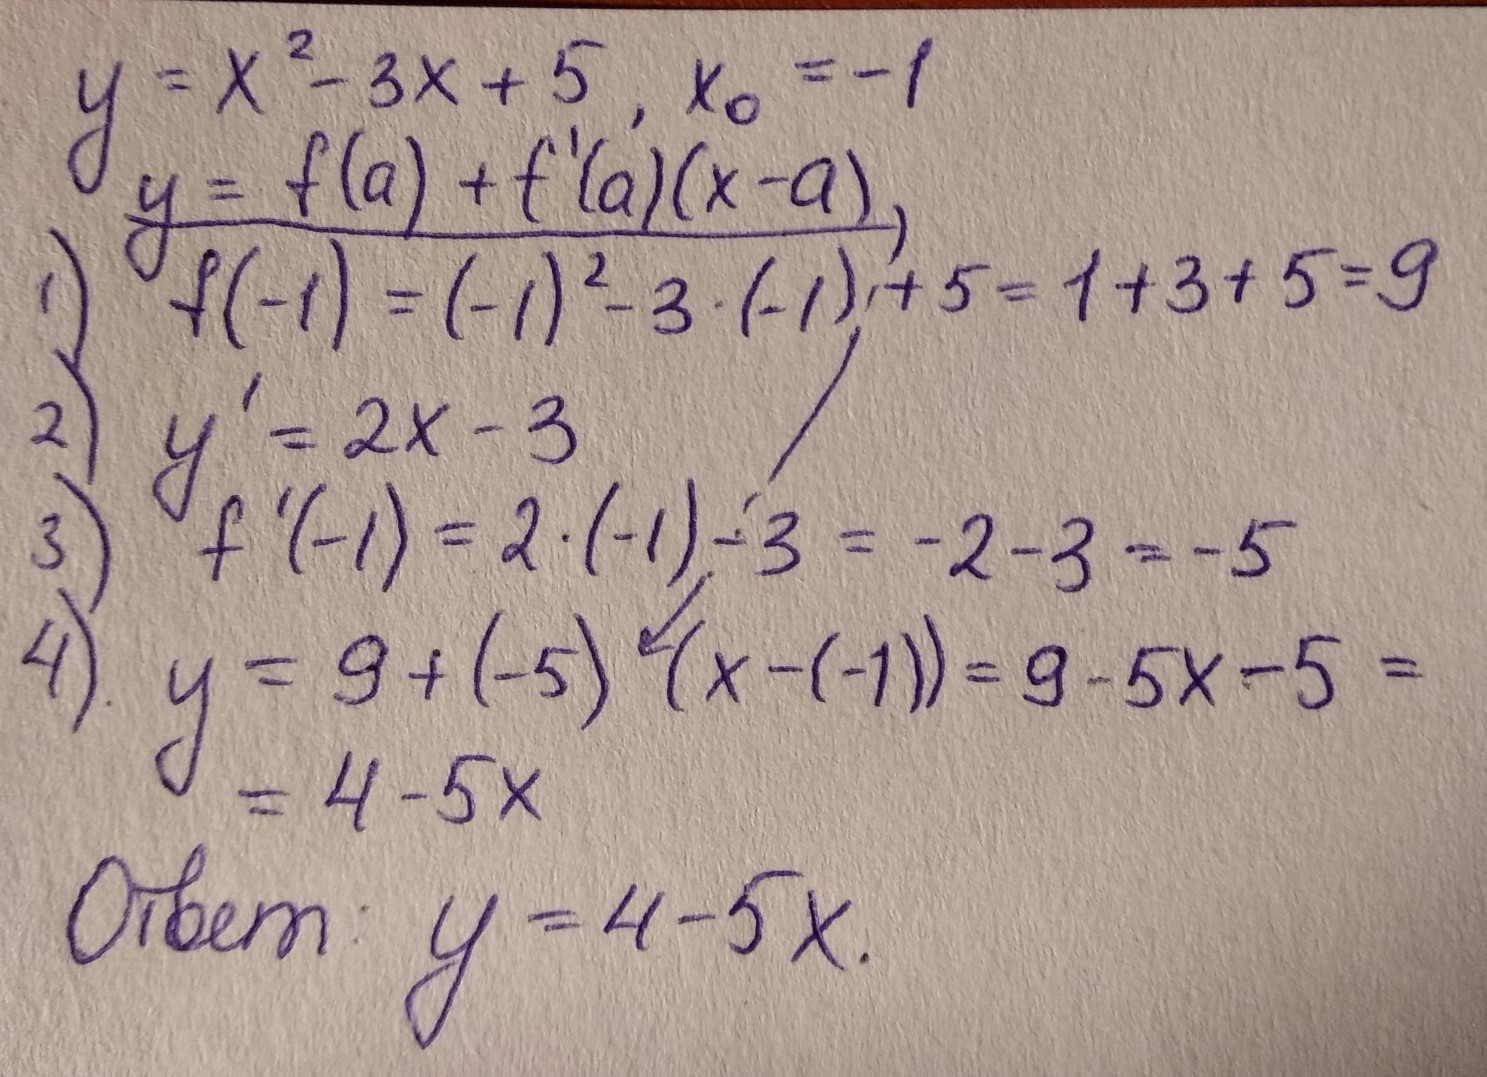 y = x² - 3x + 5, x₀ = -1
y = f(a) + f'(a)(x-a),
1) f(-1) = (-1)² - 3·(-1) + 5 = 1 + 3 + 5 = 9
2) y' = 2x - 3
3) f'(-1) = 2·(-1) - 3 = -2 - 3 = -5
4). y = 9 + (-5) (x - (-1)) = 9 - 5x - 5 =
= 4 - 5x
Ответ: y = 4 - 5x.